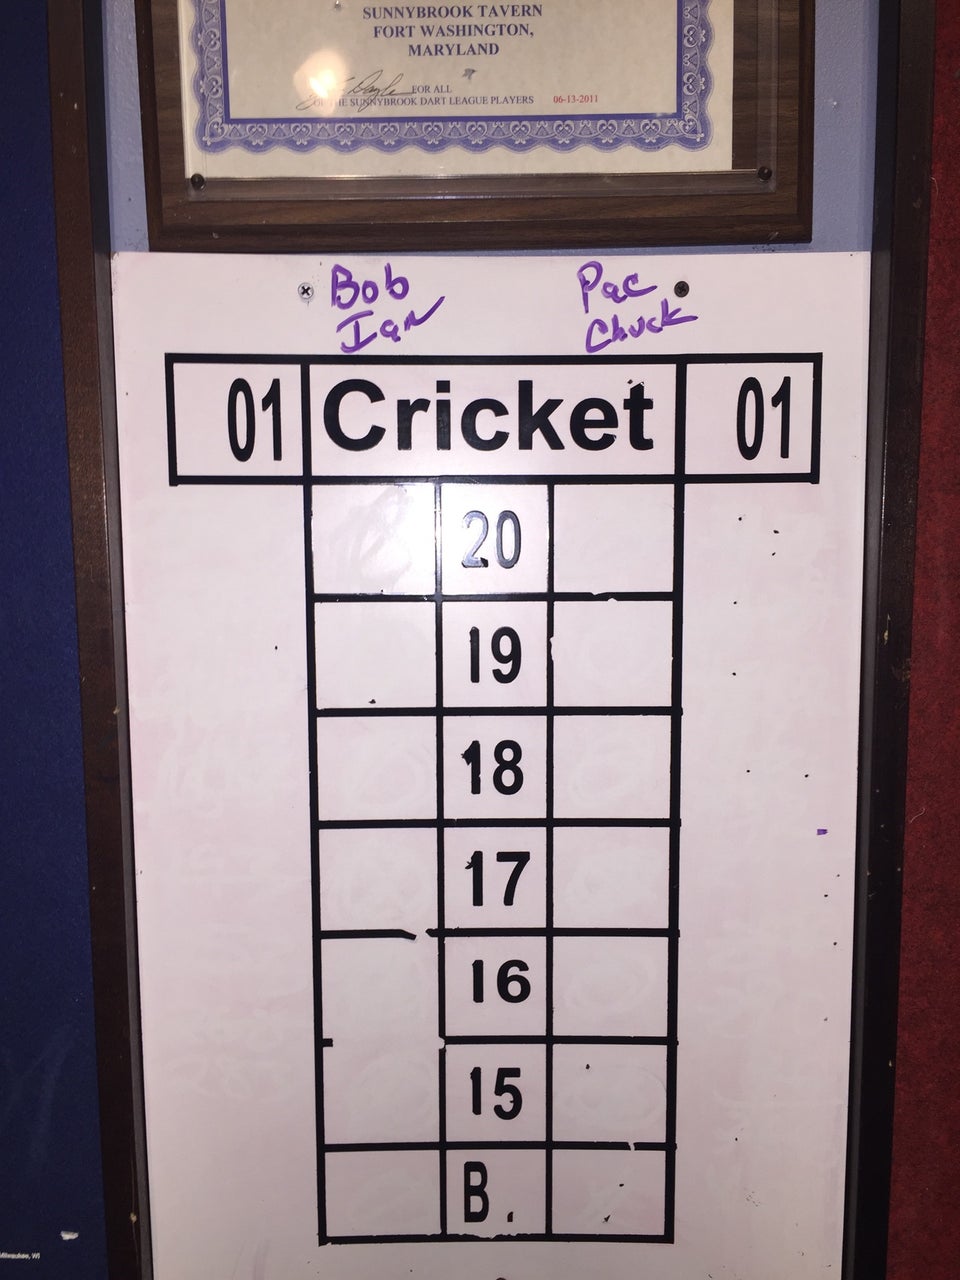 SUNNYBROOK TAVERN
FORT WASHINGTON,
MARYLAND
FOR ALL
OF THE SUNNYBROOK DART LEAGUE PLAYERS 06-13-2011
Bob Pac
Ian Chuck
01 Cricket 01
20
19
18
17
16
15
B.
Milwaukee, WI